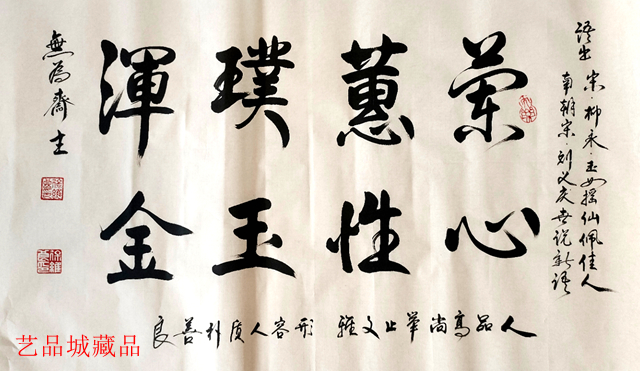 语出 宋·柳永·玉女摇仙佩佳人
南朝宋·刘义庆世说新语
蘭心
蕙性
璞玉
渾金
人品高尚举止文雅 形容人质朴善良
無為齋主
艺品城藏品